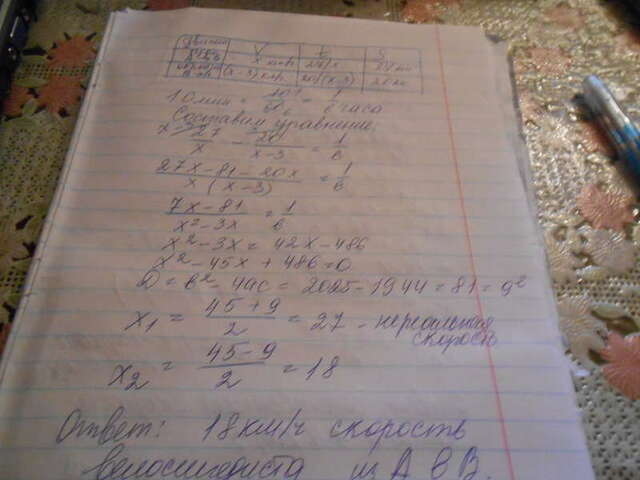 V t S
x км/ч 27/x 27 км
(x-3) км/ч 20/(x-3) 20 км
10 мин = 10/60 = 1/6 часа
Составим уравнение
27/x - 20/x-3 = 1/6
27x-81-20x/x(x-3) = 1/6
7x-81/x²-3x = 1/6
x²-3x = 42x-486
x²-45x+486=0
D = b²-4ac = 2025-1944=81=9²
x₁ = 45+9/2 = 27 - нереальная скорость
x₂ = 45-9/2 = 18
Ответ: 18км/ч скорость
велосипедиста из А в В.